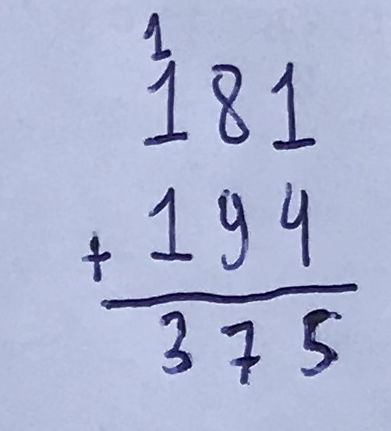 1
181
+ 194
375